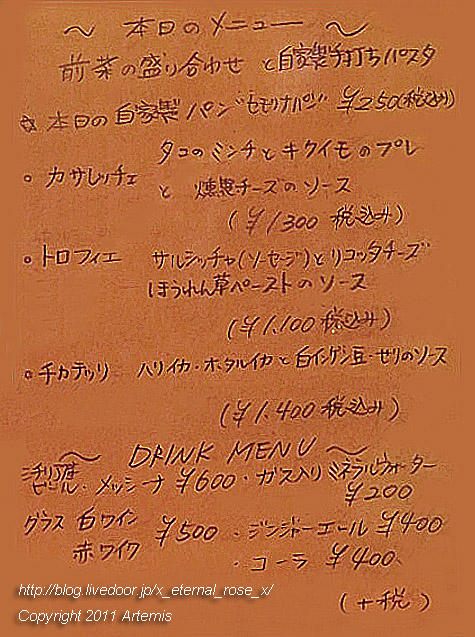 ～ 本日のメニュー ～
前菜の盛り合わせ と自家製手打ちパスタ
☆ 本日の自家製パン セモリナパン ¥250(税込み)
○ カサレッチェ タコのミンチとキクイモのプレ
と 燻製チーズのソース
(¥1300 税込み)
○ トロフィエ サルシッチャ(ソーセージ)とリコッタチーズ
ほうれん草ペーストのソース
(¥1.100税込み)
○ チカテッリ ハリイカ・ホタルイカと白インゲン豆・せりのソース
(¥1.400税込み)
～ DRINK MENU ～
ビール・メッシーナ ¥600 ・ガス入りミネラルウォーター
¥200
グラス 白ワイン ¥500 ・ジンジャーエール ¥400
赤ワイン
・コーラ ¥400
(+税)
http://blog.livedoor.jp/x_eternal_rose_x/
Copyright 2011 Artemis